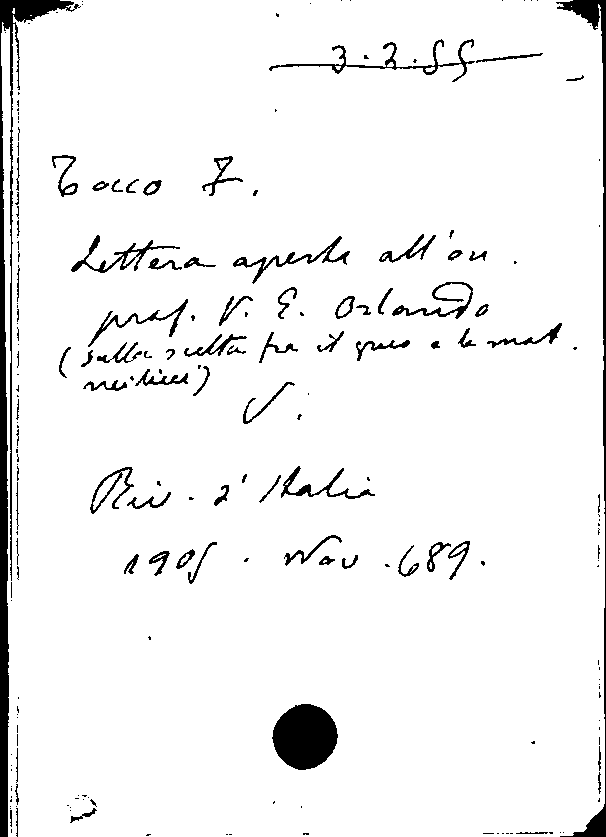 3.2.55
Tocco F.
Lettera aperta all'on.
prof. V. E. Orlando
(sulla scelta fra il greco e la mat.
nei licei)
V.
Riv. d'Italia
1905. Nov. 689.